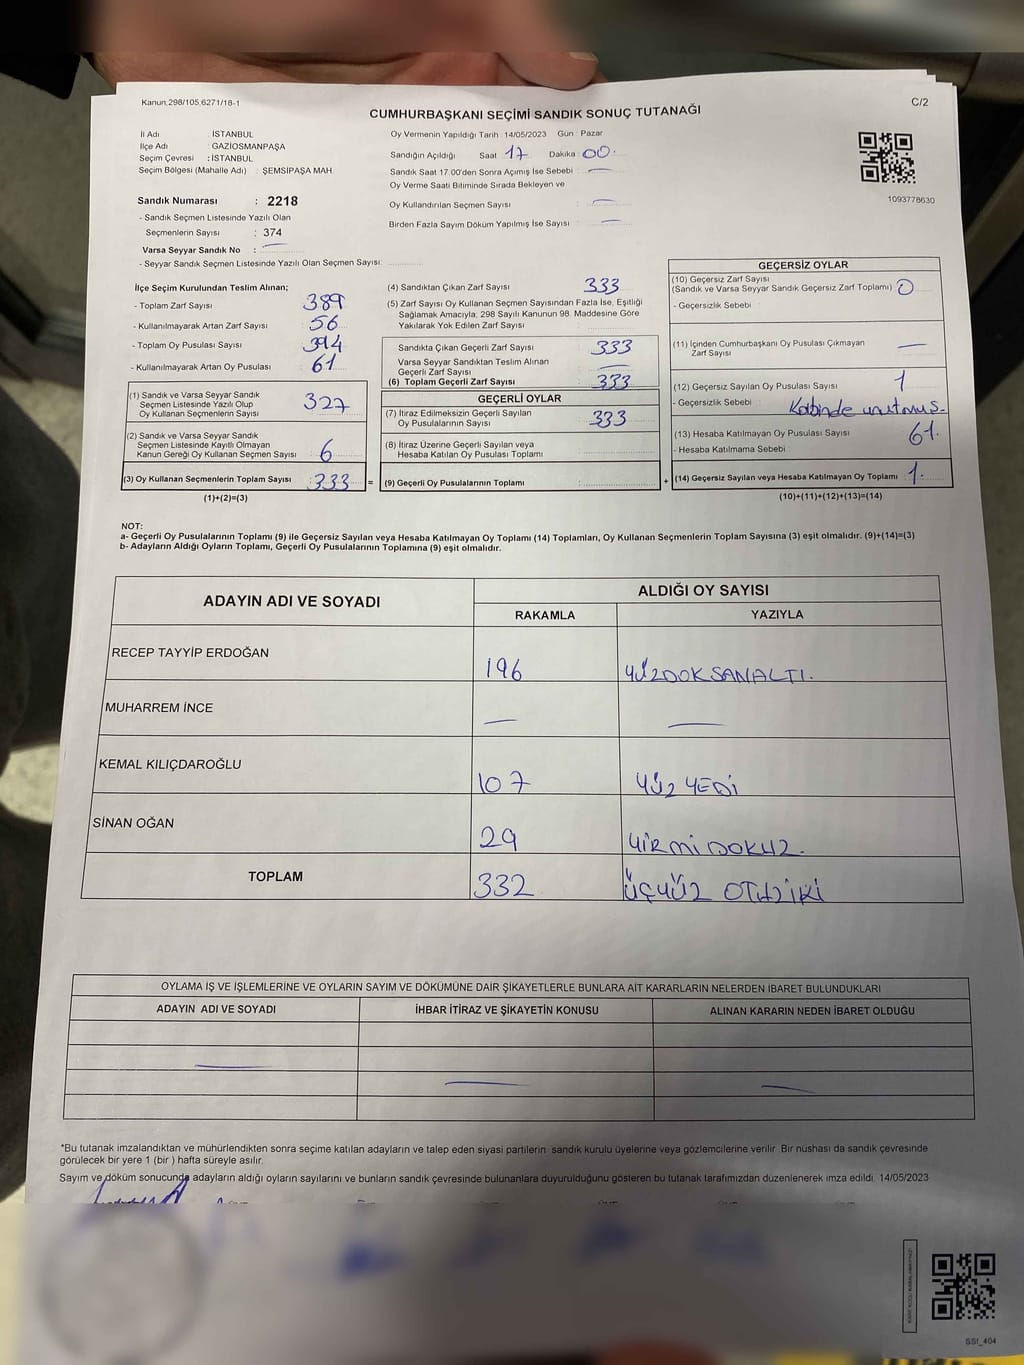 Kanun.298/105,6271/18-1
C/2
CUMHURBAŞKANI SEÇİMİ SANDIK SONUÇ TUTANAĞI
İl Adı : İSTANBUL
İlçe Adı : GAZİOSMANPAŞA
Seçim Çevresi : İSTANBUL
Seçim Bölgesi (Mahalle Adı) : ŞEMSİPAŞA MAH.
Sandık Numarası : 2218
- Sandık Seçmen Listesinde Yazılı Olan
Seçmenlerin Sayısı : 374
Varsa Seyyar Sandık No : —
- Seyyar Sandık Seçmen Listesinde Yazılı Olan Seçmen Sayısı:
Oy Vermenin Yapıldığı Tarih : 14/05/2023 Gün : Pazar
Sandığın Açıldığı Saat 17 Dakika 00
Sandık Saat 17.00'den Sonra Açımış İse Sebebi : —
Oy Verme Saati Bitiminde Sırada Bekleyen ve
Oy Kullandırılan Seçmen Sayısı : —
Birden Fazla Sayım Döküm Yapılmış İse Sayısı : —
1093778630
İlçe Seçim Kurulundan Teslim Alınan;
- Toplam Zarf Sayısı : 389
- Kullanılmayarak Artan Zarf Sayısı : 56
- Toplam Oy Pusulası Sayısı : 394
- Kullanılmayarak Artan Oy Pusulası : 61
(1) Sandık ve Varsa Seyyar Sandık
Seçmen Listesinde Yazılı Olup
Oy Kullanan Seçmenlerin Sayısı : 327
(2) Sandık ve Varsa Seyyar Sandık
Seçmen Listesinde Kayıtlı Olmayan
Kanun Gereği Oy Kullanan Seçmen Sayısı : 6
(3) Oy Kullanan Seçmenlerin Toplam Sayısı : 333 =
(1)+(2)=(3)
(4) Sandıktan Çıkan Zarf Sayısı : 333
(5) Zarf Sayısı Oy Kullanan Seçmen Sayısından Fazla İse, Eşitliği
Sağlamak Amacıyla; 298 Sayılı Kanunun 98. Maddesine Göre
Yakılarak Yok Edilen Zarf Sayısı :
Sandıkta Çıkan Geçerli Zarf Sayısı : 333
Varsa Seyyar Sandıktan Teslim Alınan
Geçerli Zarf Sayısı : —
(6) Toplam Geçerli Zarf Sayısı : 333
GEÇERLİ OYLAR
(7) İtiraz Edilmeksizin Geçerli Sayılan
Oy Pusulalarının Sayısı : 333
(8) İtiraz Üzerine Geçerli Sayılan veya
Hesaba Katılan Oy Pusulası Toplamı :
(9) Geçerli Oy Pusulalarının Toplamı : +
GEÇERSİZ OYLAR
(10) Geçersiz Zarf Sayısı
(Sandık ve Varsa Seyyar Sandık Geçersiz Zarf Toplamı) : 0
- Geçersizlik Sebebi :
(11) İçinden Cumhurbaşkanı Oy Pusulası Çıkmayan
Zarf Sayısı : —
(12) Geçersiz Sayılan Oy Pusulası Sayısı : 1
- Geçersizlik Sebebi : Kabinde unutmuş.
(13) Hesaba Katılmayan Oy Pusulası Sayısı : 61.
- Hesaba Katılmama Sebebi :
(14) Geçersiz Sayılan veya Hesaba Katılmayan Oy Toplamı : 1.
(10)+(11)+(12)+(13)=(14)
NOT:
a- Geçerli Oy Pusulalarının Toplamı (9) ile Geçersiz Sayılan veya Hesaba Katılmayan Oy Toplamı (14) Toplamları, Oy Kullanan Seçmenlerin Toplam Sayısına (3) eşit olmalıdır. (9)+(14)=(3)
b- Adayların Aldığı Oyların Toplamı, Geçerli Oy Pusulalarının Toplamına (9) eşit olmalıdır.
ADAYIN ADI VE SOYADI
ALDIĞI OY SAYISI
RAKAMLA YAZIYLA
RECEP TAYYİP ERDOĞAN 196 YÜZDOKSANALTI.
MUHARREM İNCE — —
KEMAL KILIÇDAROĞLU 107 YÜZ YEDİ
SİNAN OĞAN 29 YİRMİ DOKUZ.
TOPLAM 332 ÜÇYÜZ OTUZİKİ
OYLAMA İŞ VE İŞLEMLERİNE VE OYLARIN SAYIM VE DÖKÜMÜNE DAİR ŞİKAYETLERLE BUNLARA AİT KARARLARIN NELERDEN İBARET BULUNDUKLARI
ADAYIN ADI VE SOYADI İHBAR İTİRAZ VE ŞİKAYETİN KONUSU ALINAN KARARIN NEDEN İBARET OLDUĞU
*Bu tutanak imzalandıktan ve mühürlendikten sonra seçime katılan adayların ve talep eden siyasi partilerin sandık kurulu üyelerine veya gözlemcilerine verilir. Bir nushası da sandık çevresinde
görülecek bir yere 1 (bir) hafta süreyle asılır.
Sayım ve döküm sonucunda adayların aldığı oyların sayılarını ve bunların sandık çevresinde bulunanlara duyurulduğunu gösteren bu tutanak tarafımızdan düzenlenerek imza edildi. 14/05/2023
SSI_404